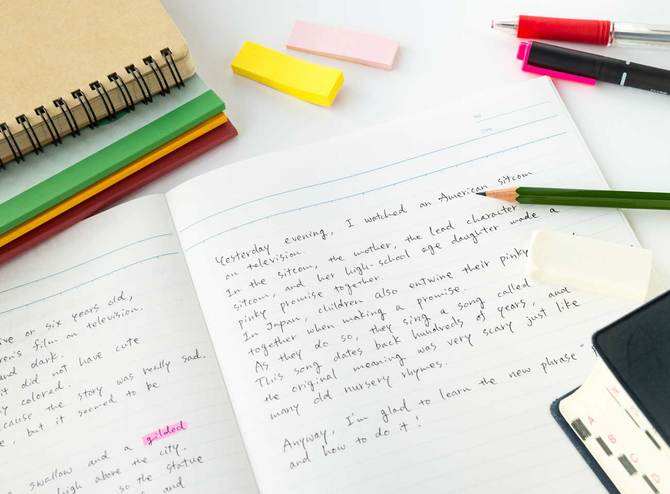 ive or six years old,
en's film on television.
and dark.
it did not have cute
y colored.
ecause the story was really sad.
e, but it seemed to be
swallow and a gilded
high above the city.
so the statue
and
NO.
DATE
Yesterday evening, I watched an American sitcom
on television.
In the sitcom, the mother, the lead character
sitcom, and her high-school age daughter made a
pinky promise together.
In Japan, children also entwine their pinky
together when making a promise.
As they do so, they sing a song called
This song dates back hundreds of years, and
the original meaning was very scary just like
many old nursery rhymes.
Anyway, I'm glad to learn the new phrase "
and how to do it!
A
B
C
D